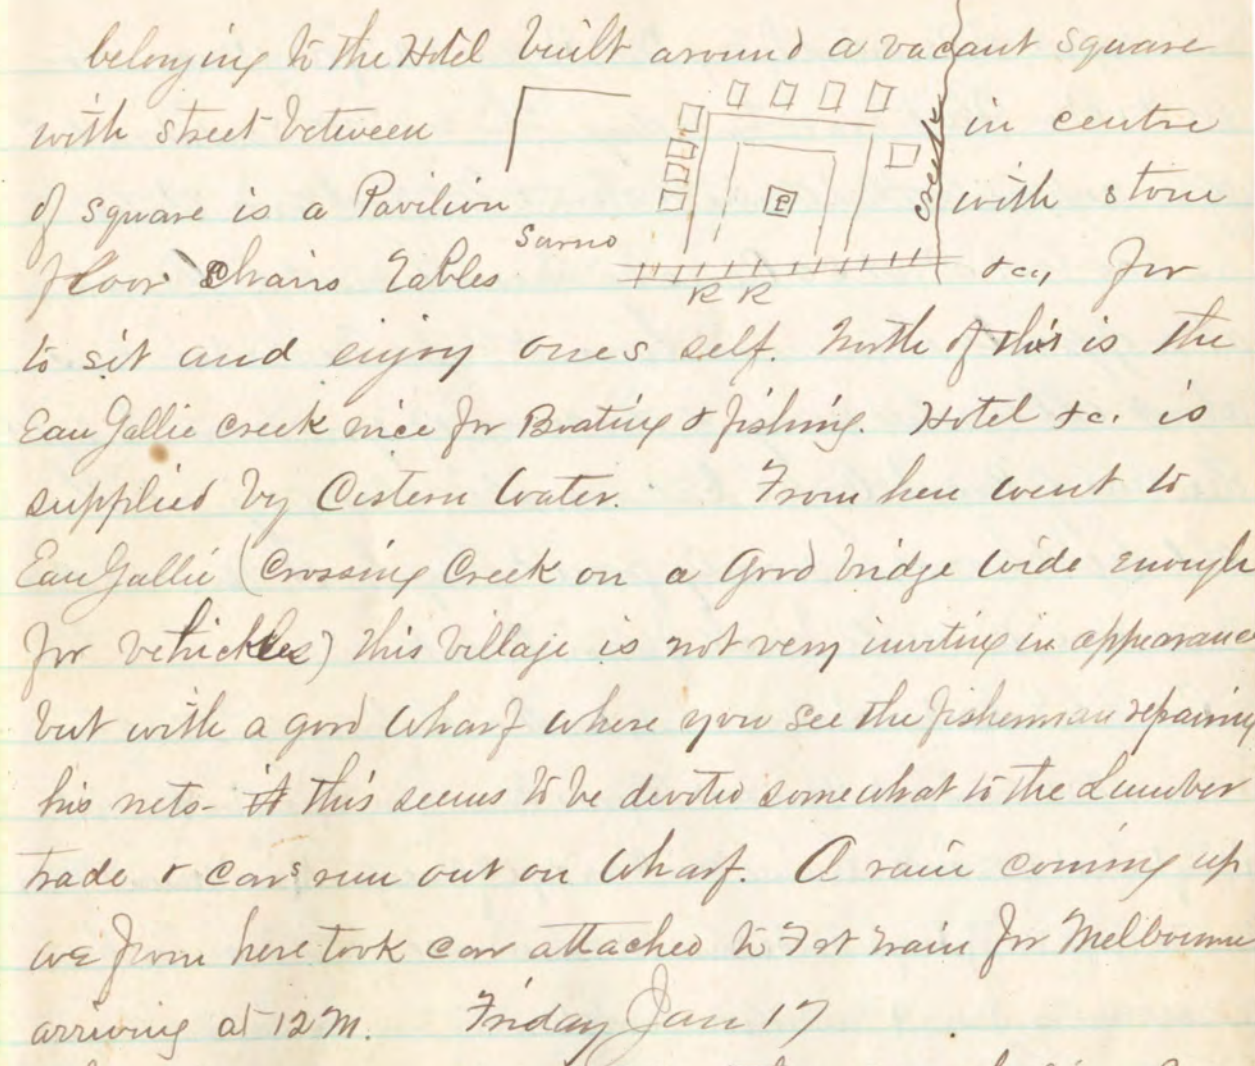 belonging to the Hotel built around a vacant square
with street between in centre
of square is a Pavilion with stone
floor chairs tables &c, for
Sarno
creek
P
R R
to sit and enjoy ones self. North of this is the
Eau Gallie creek nice for Boating & fishing. Hotel &c. is
supplied by Cistern Water. From here went to
Eau Gallie (Crossing Creek on a Good bridge wide enough
for vehickles) this Village is not very inviting in appearance
but with a good Wharf where you see the fisherman repairing
his nets - it this seems to be devoted somewhat to the Lumber
trade & cars run out on Wharf. A rain coming up
we from here took car attached to Fst train for Melbourne
arriving at 12 M. Friday Jan 17